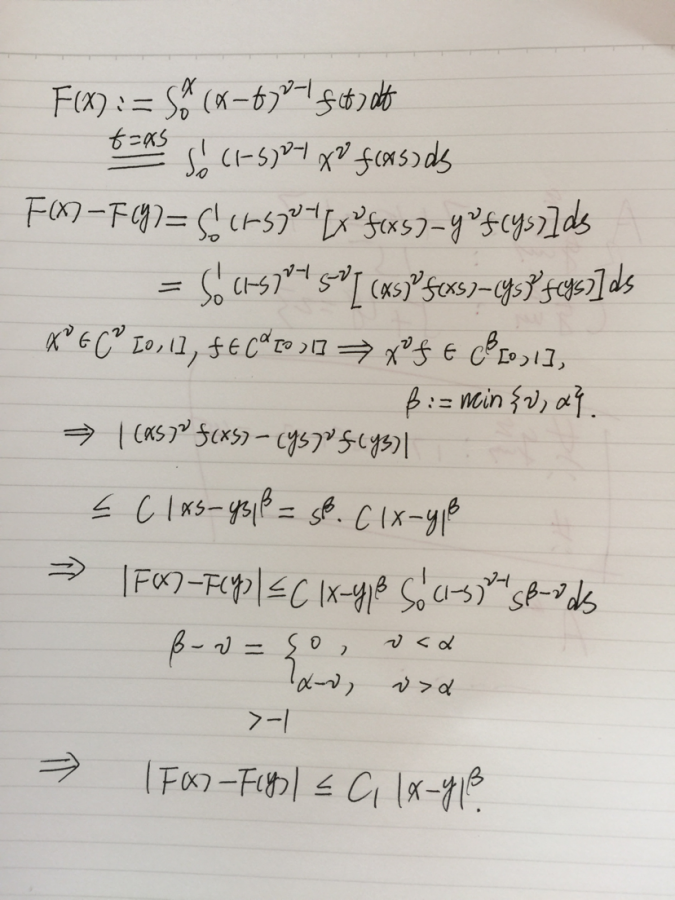 F(x) := ∫₀ˣ (x-t)^{ν-1} f(t) dt
t=xs ═ ∫₀¹ (1-s)^{ν-1} x^ν f(xs) ds
F(x)-F(y) = ∫₀¹ (1-s)^{ν-1} [x^ν f(xs) - y^ν f(ys)] ds
= ∫₀¹ (1-s)^{ν-1} s^{-ν} [(xs)^ν f(xs) - (ys)^ν f(ys)] ds
x^ν ∈ C^ν [0,1], f ∈ C^α [0,1] ⇒ x^ν f ∈ C^β [0,1],
β := min {ν, α}.
⇒ |(xs)^ν f(xs) - (ys)^ν f(ys)|
≤ C |xs-ys|^β = s^β · C |x-y|^β
⇒ |F(x)-F(y)| ≤ C |x-y|^β ∫₀¹ (1-s)^{ν-1} s^{β-ν} ds
β-ν = { 0, ν < α
α-ν, ν > α
> -1
⇒ |F(x)-F(y)| ≤ C₁ |x-y|^β.